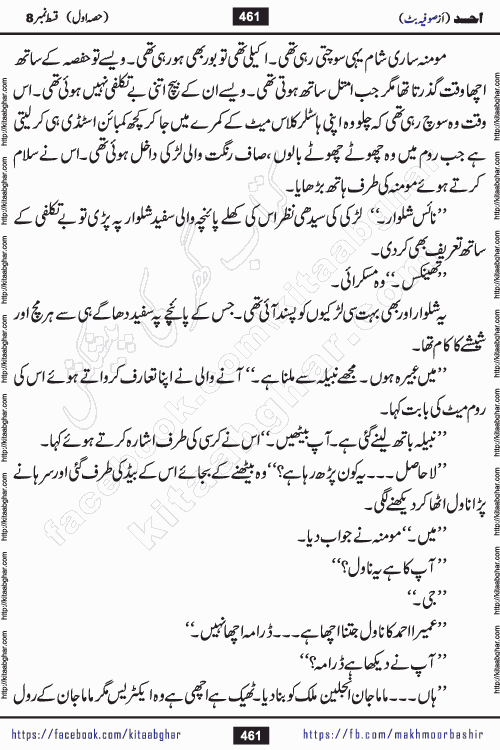 احد (از صوفیہ بٹ)
461
(حصہ اول) قسط نمبر 8
مومنہ ساری شام یہی سوچتی رہی تھی۔ اکیلی تھی تو بور بھی ہو رہی تھی۔ ویسے تو حفصہ کے ساتھ
اچھا وقت گذرتا تھا مگر جب امثل ساتھ ہوتی تھی۔ ویسے ان کے بیچ اتنی بے تکلفی نہیں ہوئی تھی۔ اس
وقت وہ سوچ رہی تھی کہ چلو وہ اپنی ہاسٹلر کلاس میٹ کے کمرے میں جا کر کچھ کمبائن اسٹڈی ہی کر لیتی
ہے جب روم میں وہ چھوٹے چھوٹے بالوں، صاف رنگت والی لڑکی داخل ہوئی تھی۔ اس نے سلام
کرتے ہوئے مومنہ کی طرف ہاتھ بڑھایا۔
”نائس شلوار۔“ لڑکی کی سیدھی نظر اس کی کھلے پائنچہ والی سفید شلوار پہ پڑی تو بے تکلفی کے
ساتھ تعریف بھی کر دی۔
”تھینکس۔“ وہ مسکرائی۔
یہ شلوار اور بھی بہت سی لڑکیوں کو پسند آئی تھی۔ جس کے پائنچے پہ سفید دھاگے ہی سے ہر مچ اور
شیشے کا کام تھا۔
”میں عبیرہ ہوں۔ مجھے نبیلہ سے ملنا ہے۔“ آنے والی نے اپنا تعارف کرواتے ہوئے اس کی
روم میٹ کی بابت کہا۔
”نبیلہ باتھ لینے گئی ہے۔ آپ بیٹھیں۔“ اس نے کرسی کی طرف اشارہ کرتے ہوئے کہا۔
”لا حاصل۔۔۔ یہ کون پڑھ رہا ہے؟“ وہ بیٹھنے کے بجائے اس کے بیڈ کی طرف گئی اور سرہانے
پڑا ناول اٹھا کر دیکھنے لگی۔
”میں۔“ مومنہ نے جواب دیا۔
”آپ کا ہے یہ ناول؟“
”جی۔“
”عمیرا احمد کا ناول جتنا اچھا ہے۔۔۔ ڈرامہ اچھا نہیں۔“
”آپ نے دیکھا ہے ڈرامہ؟“
”ہاں۔۔۔ ماما جان انجلین ملک کو بنا دیا۔ ٹھیک ہے اچھی ہے وہ ایکٹریس مگر ماما جان کے رول
https://facebook.com/kitaabghar
461
https://fb.com/makhmoorbashir
http://kitaabghar.com
http://kitaabghar.com
کتاب گھر کی پیشکش
facebook.com/kitaabghar
kitaabghar.com